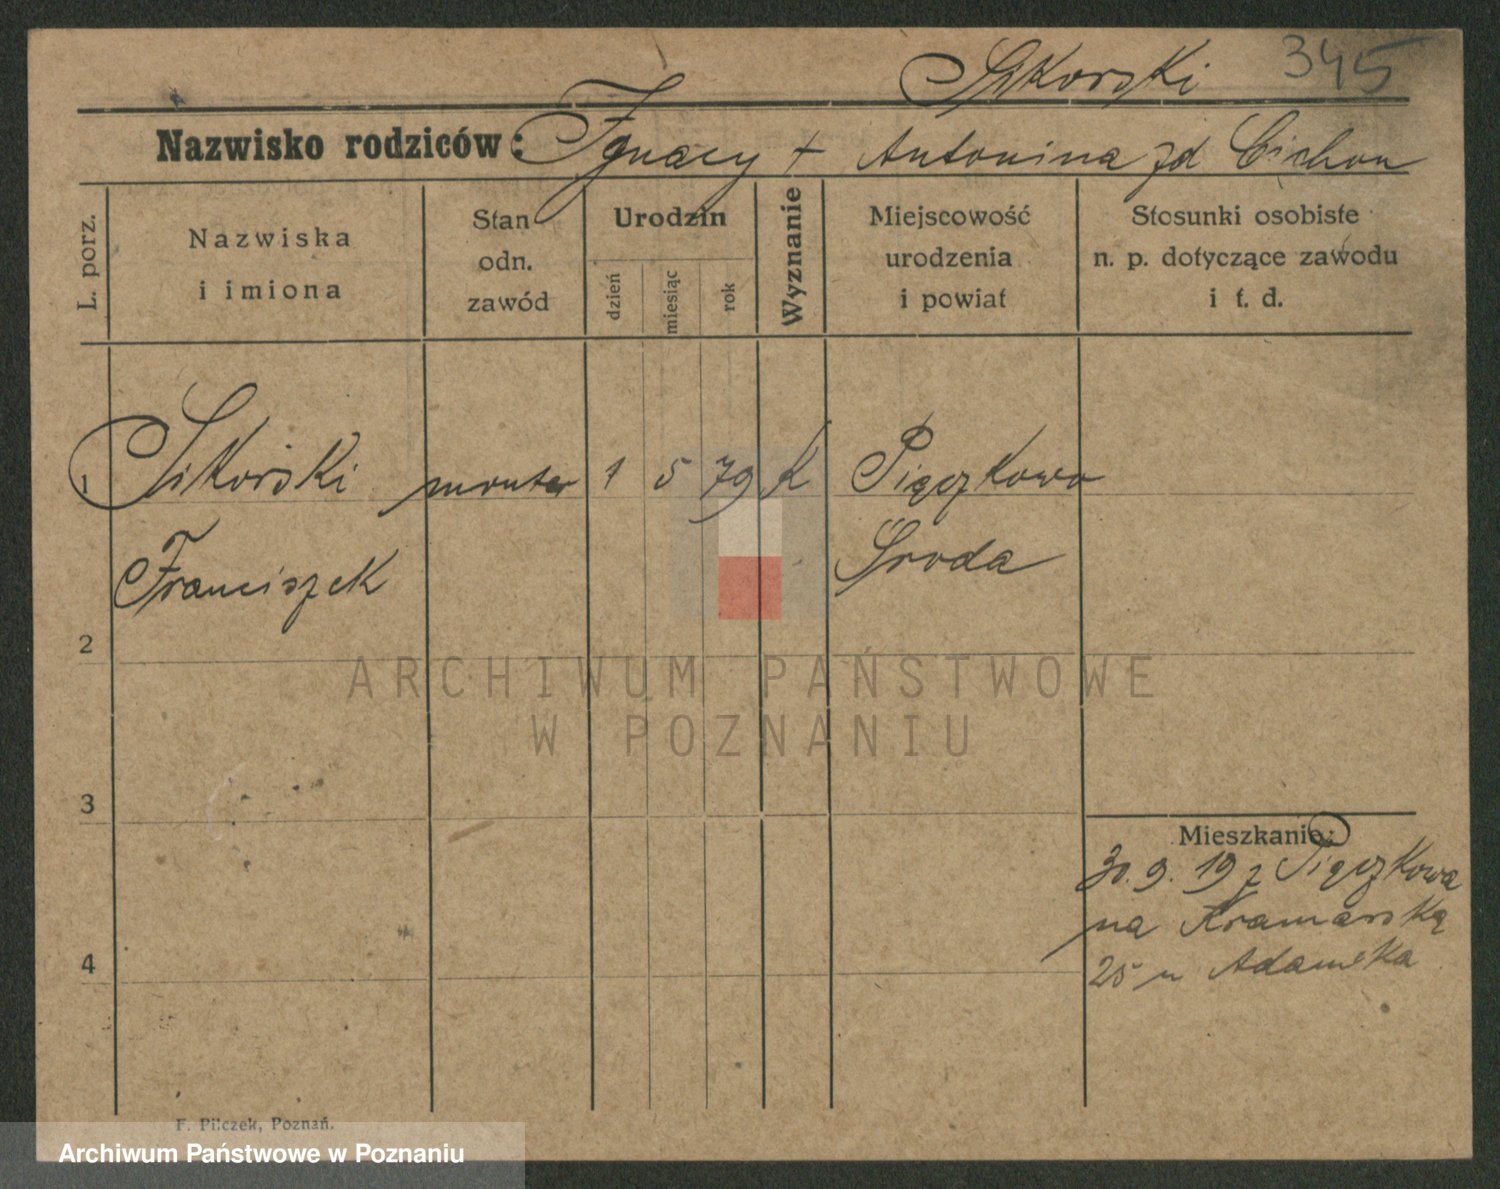 Sikorski 345
Nazwisko rodziców: Ignacy + Antonina zd Cichon
L. porz.
Nazwiska
i imiona
Stan
odn.
zawód
Urodzin
dzień
miesiąc
rok
Wyznanie
Miejscowość
urodzenia
i powiat
Stosunki osobiste
n. p. dotyczące zawodu
i t. d.
1 Sikorski monter 1 5 79 K Piączkowo
Franciszek Sroda
2
ARCHIWUM PAŃSTWOWE
W POZNANIU
3
Mieszkanie:
30. 9. 19 z Piączkowa
na Kramarską
4
25 u Adamska
F. Pilczek, Poznań.
Archiwum Państwowe w Poznaniu